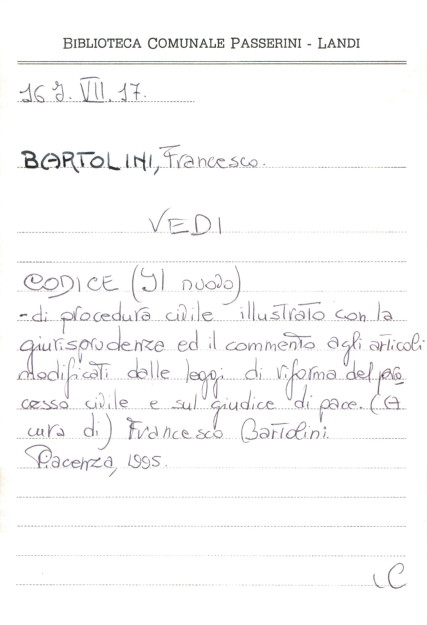 BIBLIOTECA COMUNALE PASSERINI - LANDI
16 J. VII. 17.
BARTOLINI, Francesco.
VEDI
CODICE (Il nuovo)
-di procedura civile illustrato con la
giurisprudenza ed il commento agli articoli
modificati dalle leggi di riforma del pro
cesso civile e sul giudice di pace. (A
cura di) Francesco Bartolini.
Piacenza, 1995.